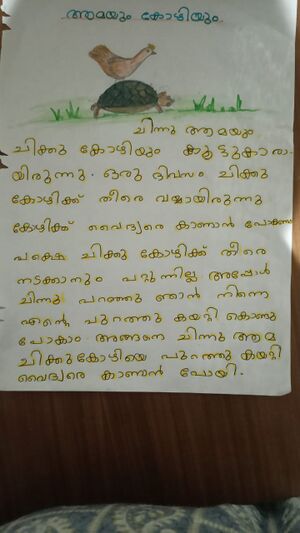 ആമയും കോഴിയും
ചിന്നു ആമയും
ചിക്കു കോഴിയും കൂട്ടുകാരാ-
യിരുന്നു. ഒരു ദിവസം ചിക്കു
കോഴിക്ക് തീരെ വയ്യായിരുന്നു
കോഴിക്ക് വൈദ്യരെ കാണാൻ പോകണം
പക്ഷെ ചിക്കു കോഴിക്ക് തീരെ
നടക്കാനും പറ്റുന്നില്ല അപ്പോൾ
ചിന്നു പറഞ്ഞു ഞാൻ നിന്നെ
എന്റെ പുറത്തു കയറ്റി കൊണ്ടു
പോകാം അങ്ങനെ ചിന്നു ആമ
ചിക്കുകോഴിയെ പുറത്തു കയറ്റി
വൈദ്യരെ കാണാൻ പോയി.